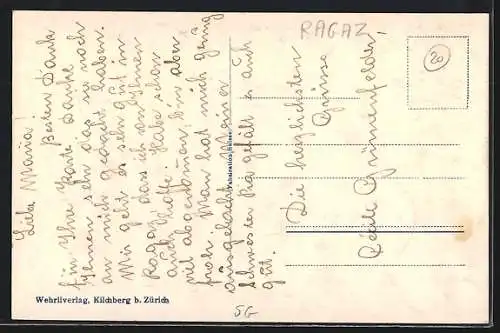 RAGAZ
20
Liebe Maria!
Besten Dank
für Ihre Karte. Danke
Ihnen sehr das sie noch
an mich gedacht haben.
Mir geht es sehr gut in
Ragaz, das ich von Ihnen
auch hoffe. Habe schon
viel abgenommen, bin aber
froh. Man hat mich genug
ausgelacht. Meiner
Schwester Ida gefält es auch
gut.
Die herzlichsten
Grüsse
Grünenfelder
Wehrliverlag, Kilchberg b. Zürich
Fabrication Suisse
5G